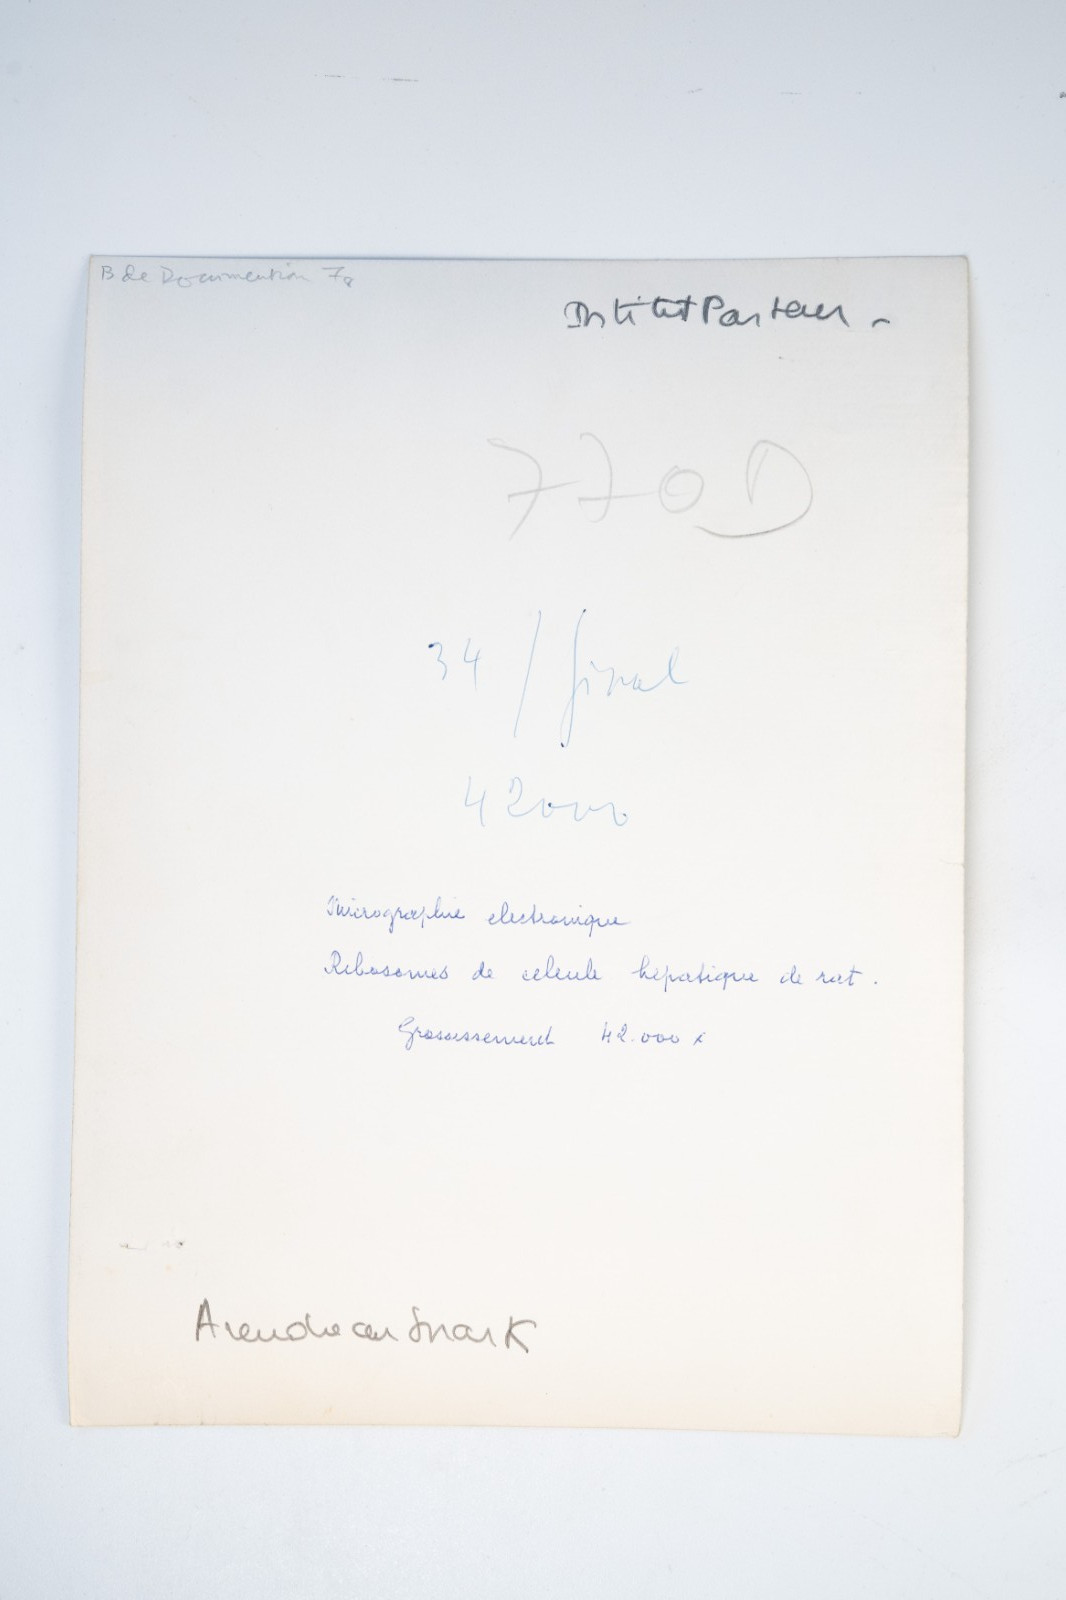 B de Documention 78
Institut Pasteur -
770 D
34 / final
42000
Micrographie electronique
Ribosomes de celeule hépatique de rat.
Grossissement 42.000 x
A rendre au Snark